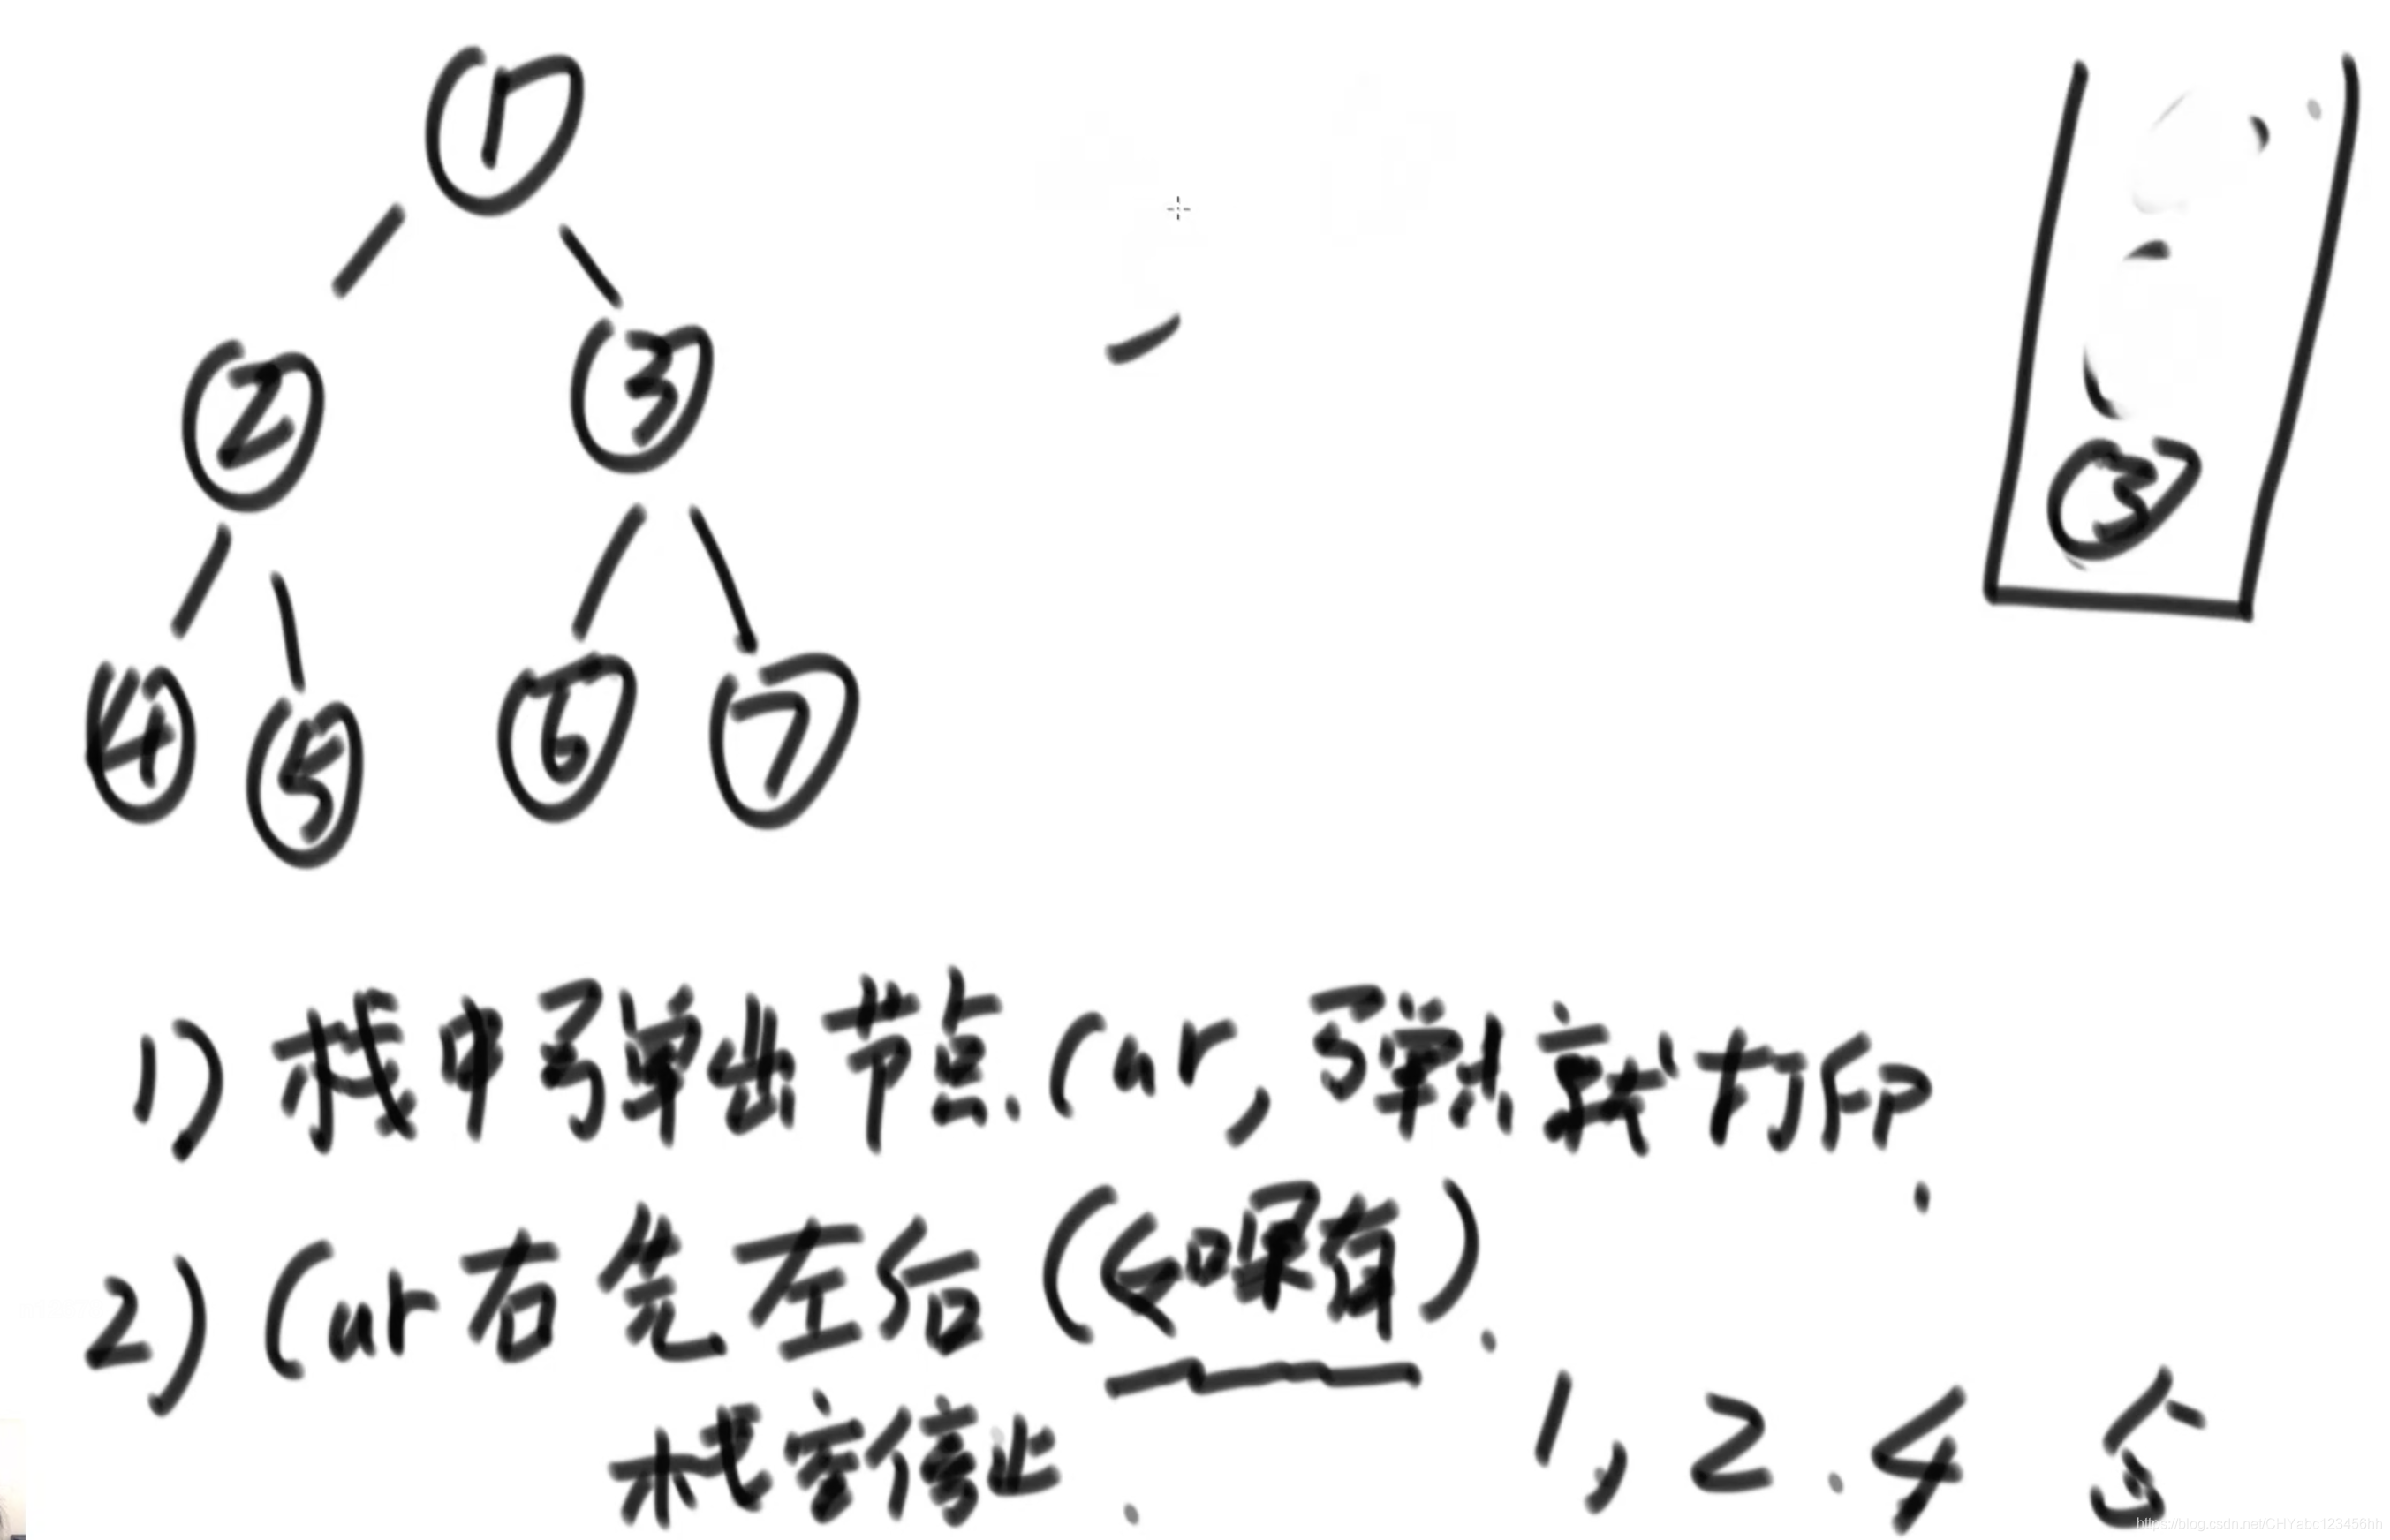 1
2 3
4 5 6 7
3
1) 栈中弹出节点 Cur, 弹就打印.
2) Cur 右先左后 (如果有).
栈空停止.
1, 2. 4 5
https://blog.csdn.net/CHYabc123456hh